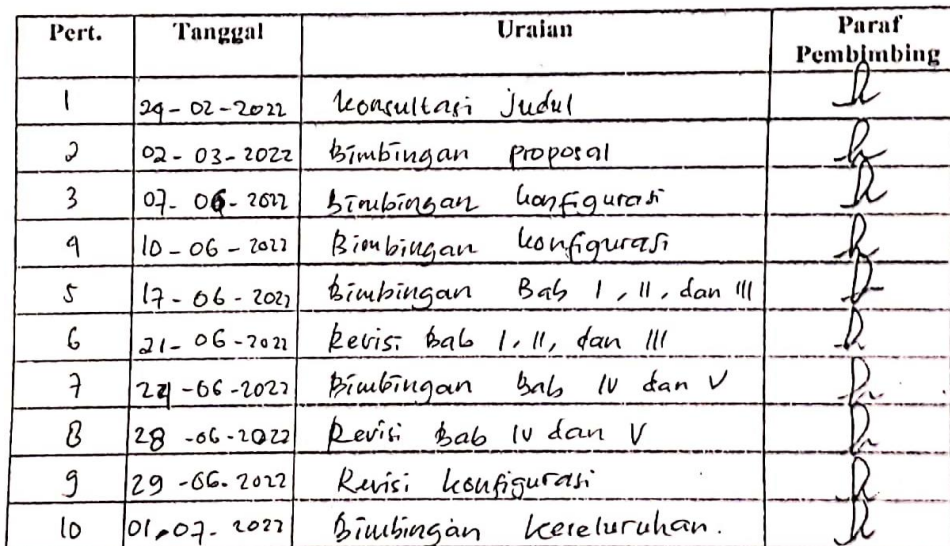 Pert. Tanggal Uraian Paraf Pembimbing
1 24-02-2022 Konsultasi Judul
2 02-03-2022 Bimbingan proposal
3 07-06-2022 Bimbingan konfigurasi
4 10-06-2022 Bimbingan konfigurasi
5 17-06-2022 Bimbingan Bab I, II, dan III
6 21-06-2022 Revisi Bab I, II, dan III
7 24-06-2022 Bimbingan Bab IV dan V
8 28-06-2022 Revisi Bab IV dan V
9 29-06-2022 Revisi konfigurasi
10 01-07-2022 Bimbingan keseluruhan.